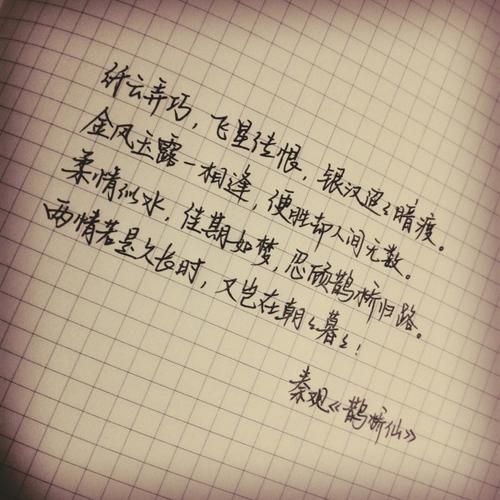 纤云弄巧，飞星传恨，银汉迢々暗渡。
金风玉露一相逢，便胜却人间无数。
柔情似水，佳期如梦，忍顾鹊桥归路。
两情若是久长时，又岂在朝々暮々！
秦观《鹊桥仙》